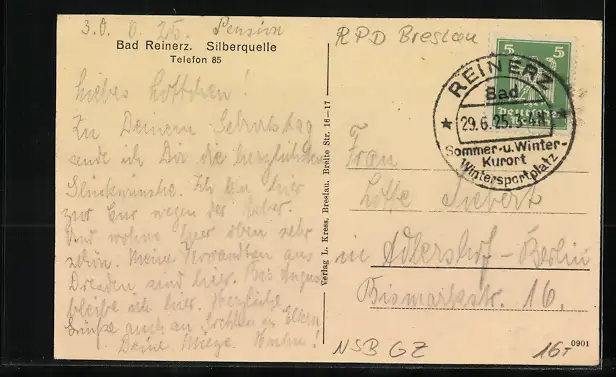 Pension
Bad Reinerz. Silberquelle
Telefon 85
Liebes Lottchen!
Zu Deinem Geburtstag
sende ich Dir die herzlichsten
Glückwünsche. Ich bin hier
zur Kur wegen der
und wohne hier oben sehr
schön. Meine Verwandten aus
Dresden sind hier. Bis August
bleibe ich hier. Herzliche
Grüße auch an Eltern
Deine
Verlag L. Kress, Breslau, Breite Str. 16-17
RPD Breslau
5 5
REINERZ
Bad
29.6.25.
Sommer-u. Winter-
Kurort
Wintersportplatz
Frau
Lotte Siebert
in Adlershof-Berlin
Bismarkstr. 16.
NSB GZ
16,-
0901